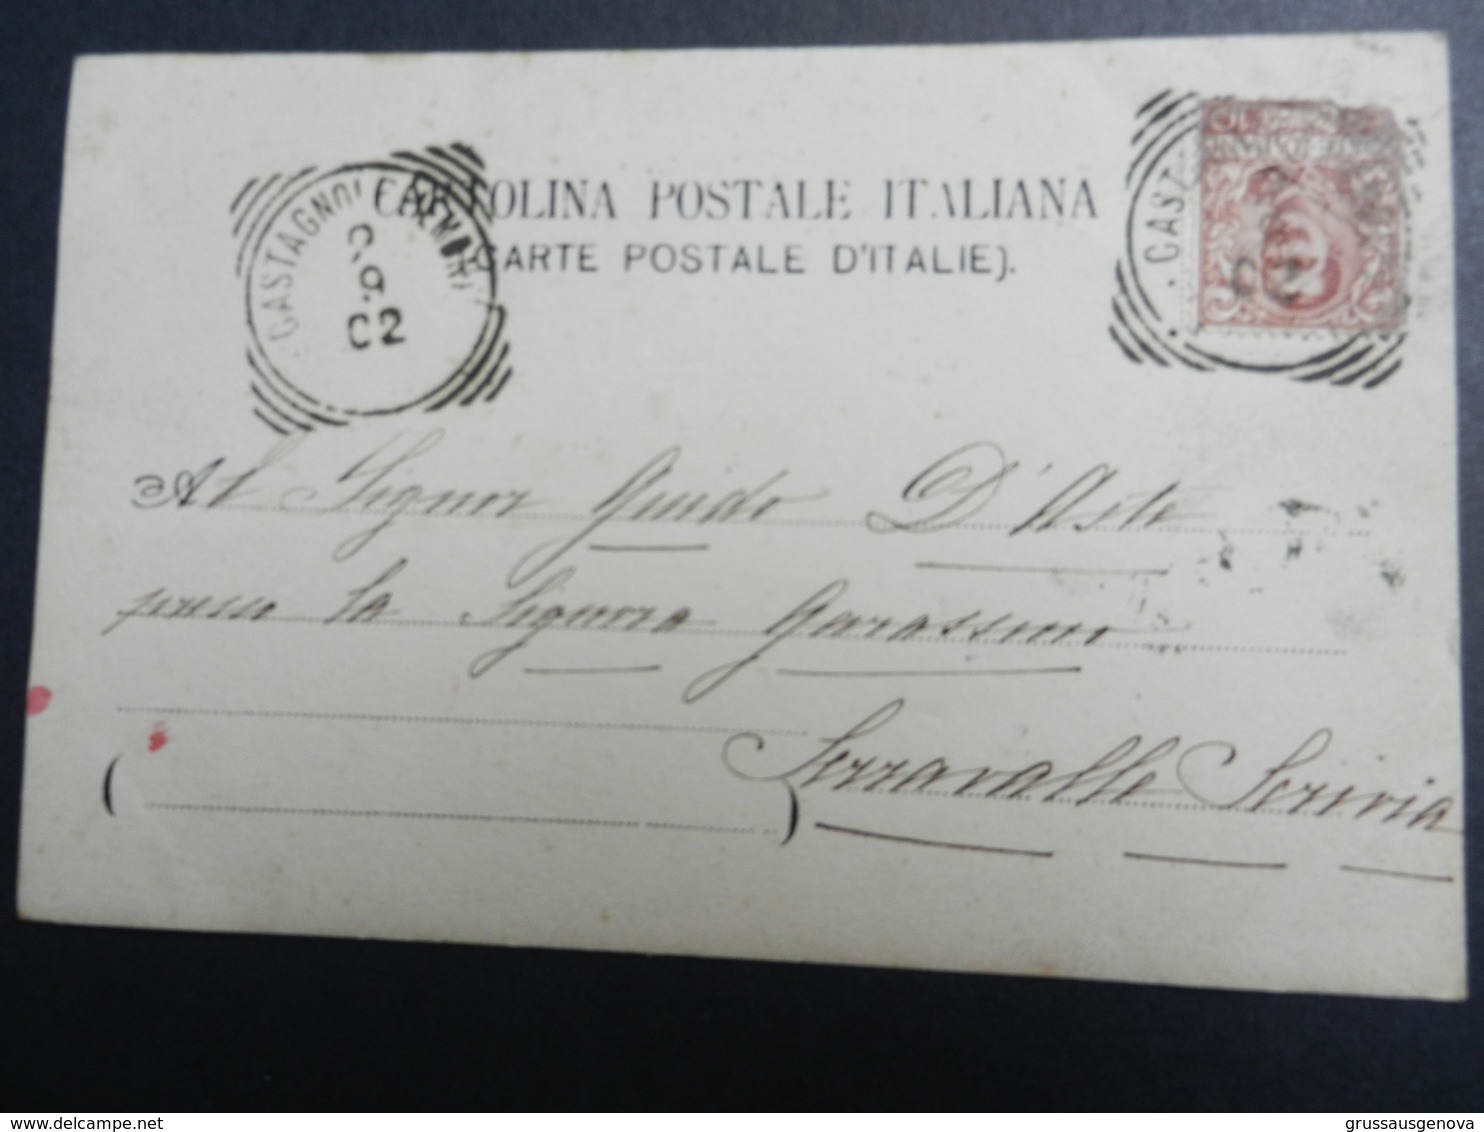 CARTOLINA POSTALE ITALIANA
(CARTE POSTALE D'ITALIE).
CASTAGNOLE
9
02
CAST
02
Al Signor Guido D'Aste
presso la Signora Garassino
Serravalle Scrivia
delcampe.net
grussausgenova